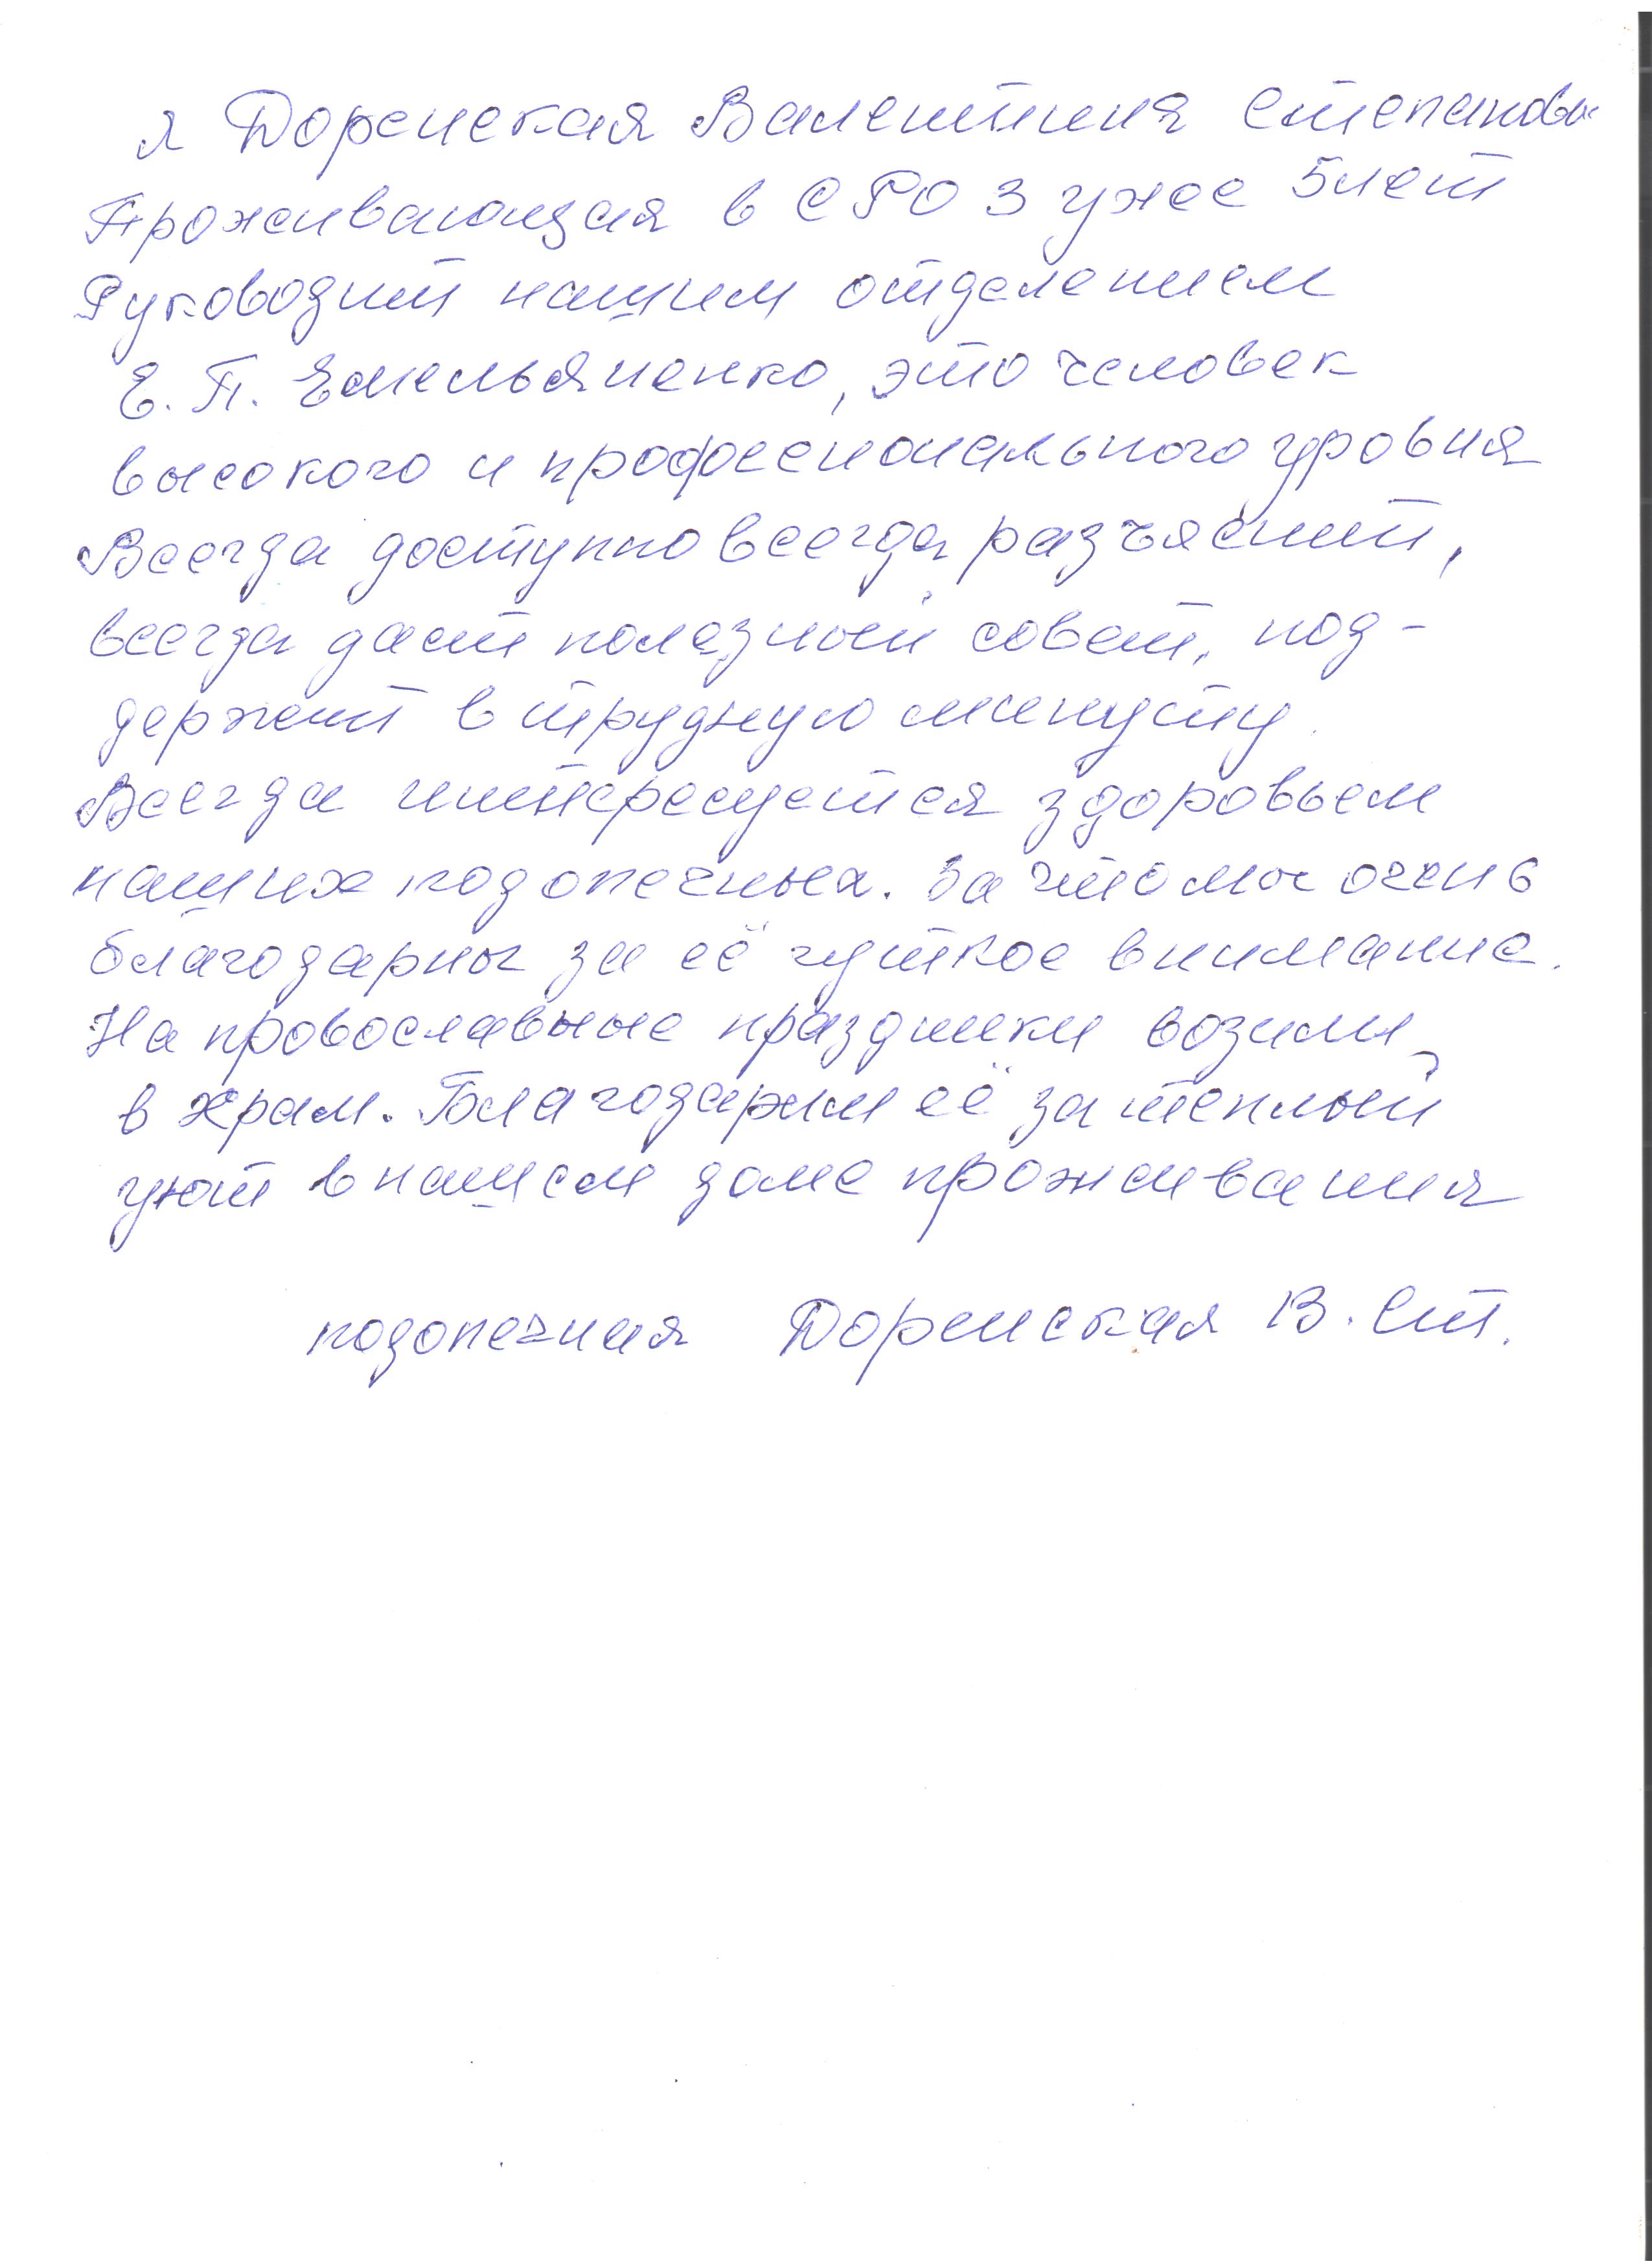 я Доренская Валентиня Степановн
Проживающая в СРО 3 уже 5 лет
Руководит нашим отделением
Е. П. Емельяненко, это человек
высокого и професеионального уровня
Всегда доступно всегда разъяснит,
всегда даст полезный совет, под-
держит в трудную минуту.
Всегда интересуется здоровьем
наших подопечных. За что мы очень
благодарны за её чуткое внимание.
На провославные праздники возили
в храм. Благодарим её за теплый
уют в нашем доме проживания
подопечная Доренская В. Ст.